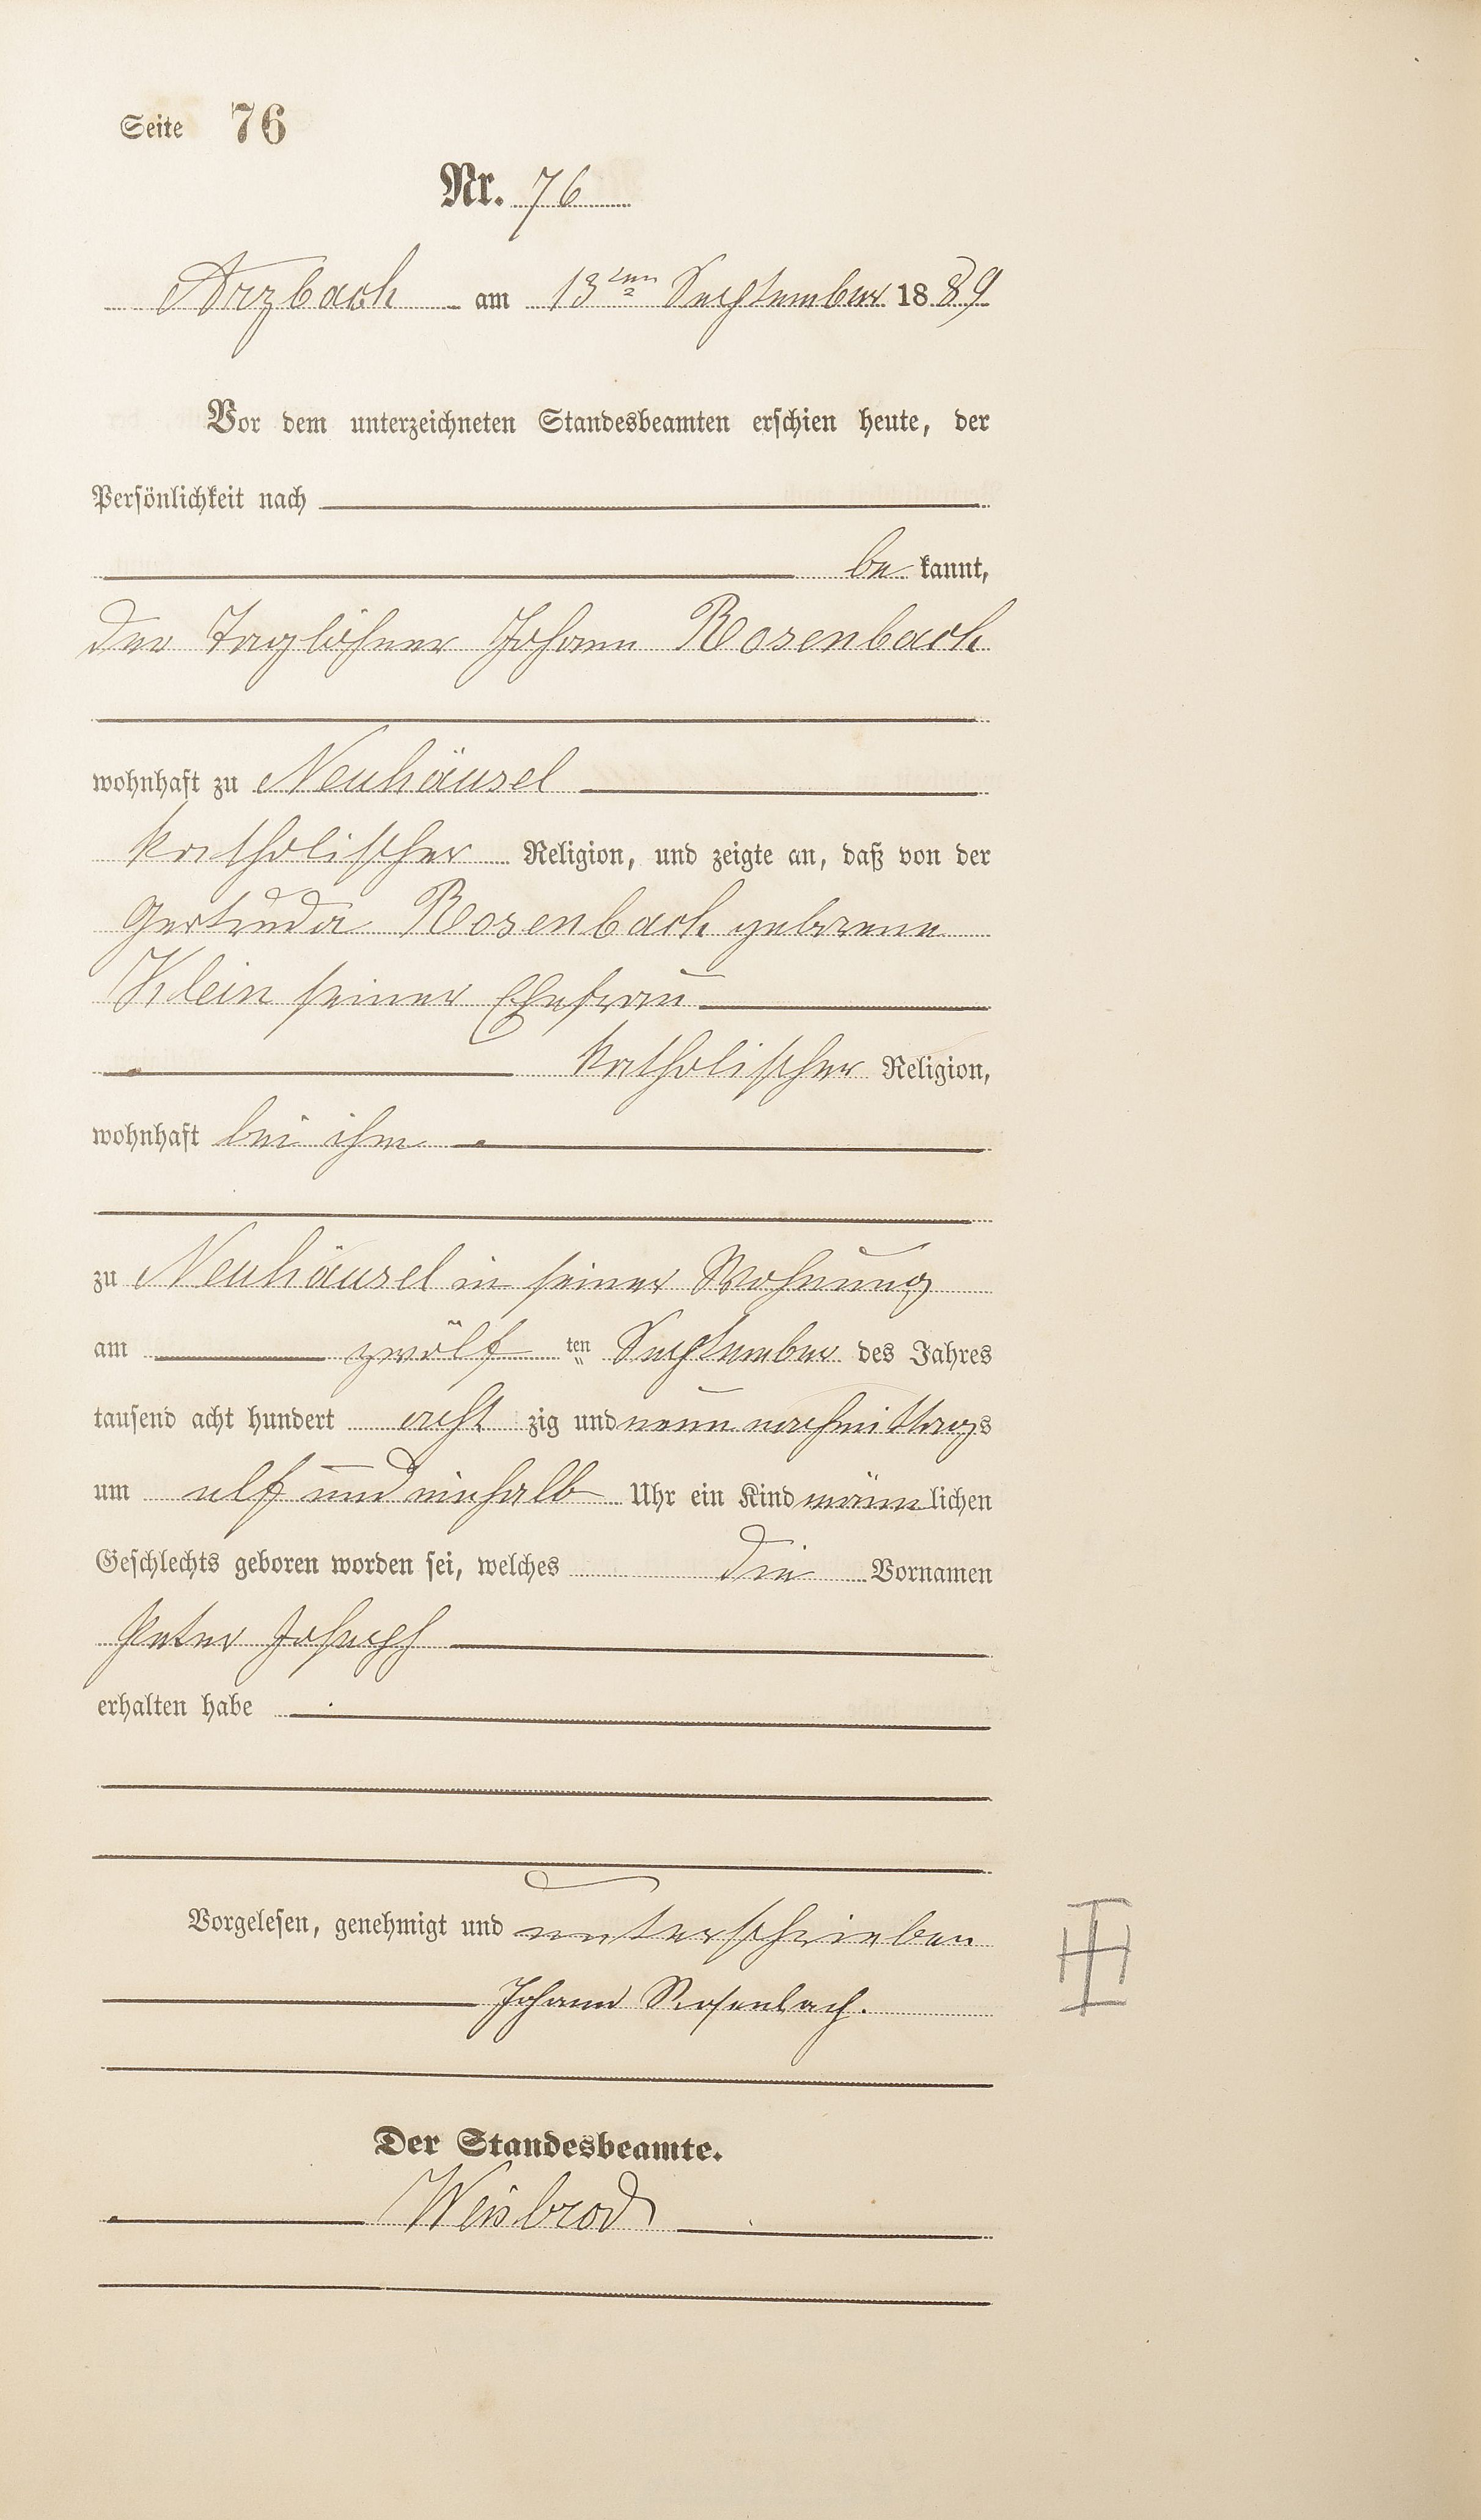 Seite 76
Nr. 76
Arzbach am 13ten September 1889
Vor dem unterzeichneten Standesbeamten erschien heute, der
Persönlichkeit nach
bekannt,
der Taglöhner Johann Rosenbach
wohnhaft zu Neuhäusel
katholischer Religion, und zeigte an, daß von der
Gertruda Rosenbach geborene
Klein seiner Ehefrau
katholischer Religion,
wohnhaft bei ihm
zu Neuhäusel in seiner Wohnung
am zwölften September des Jahres
tausend acht hundert acht zig und neun nachmittags
um elf und einhalb Uhr ein Kind männlichen
Geschlechts geboren worden sei, welches die Vornamen
Peter Joseph
erhalten habe
Vorgelesen, genehmigt und unterschrieben
Johann Rosenbach.
Der Standesbeamte.
Weisbrod